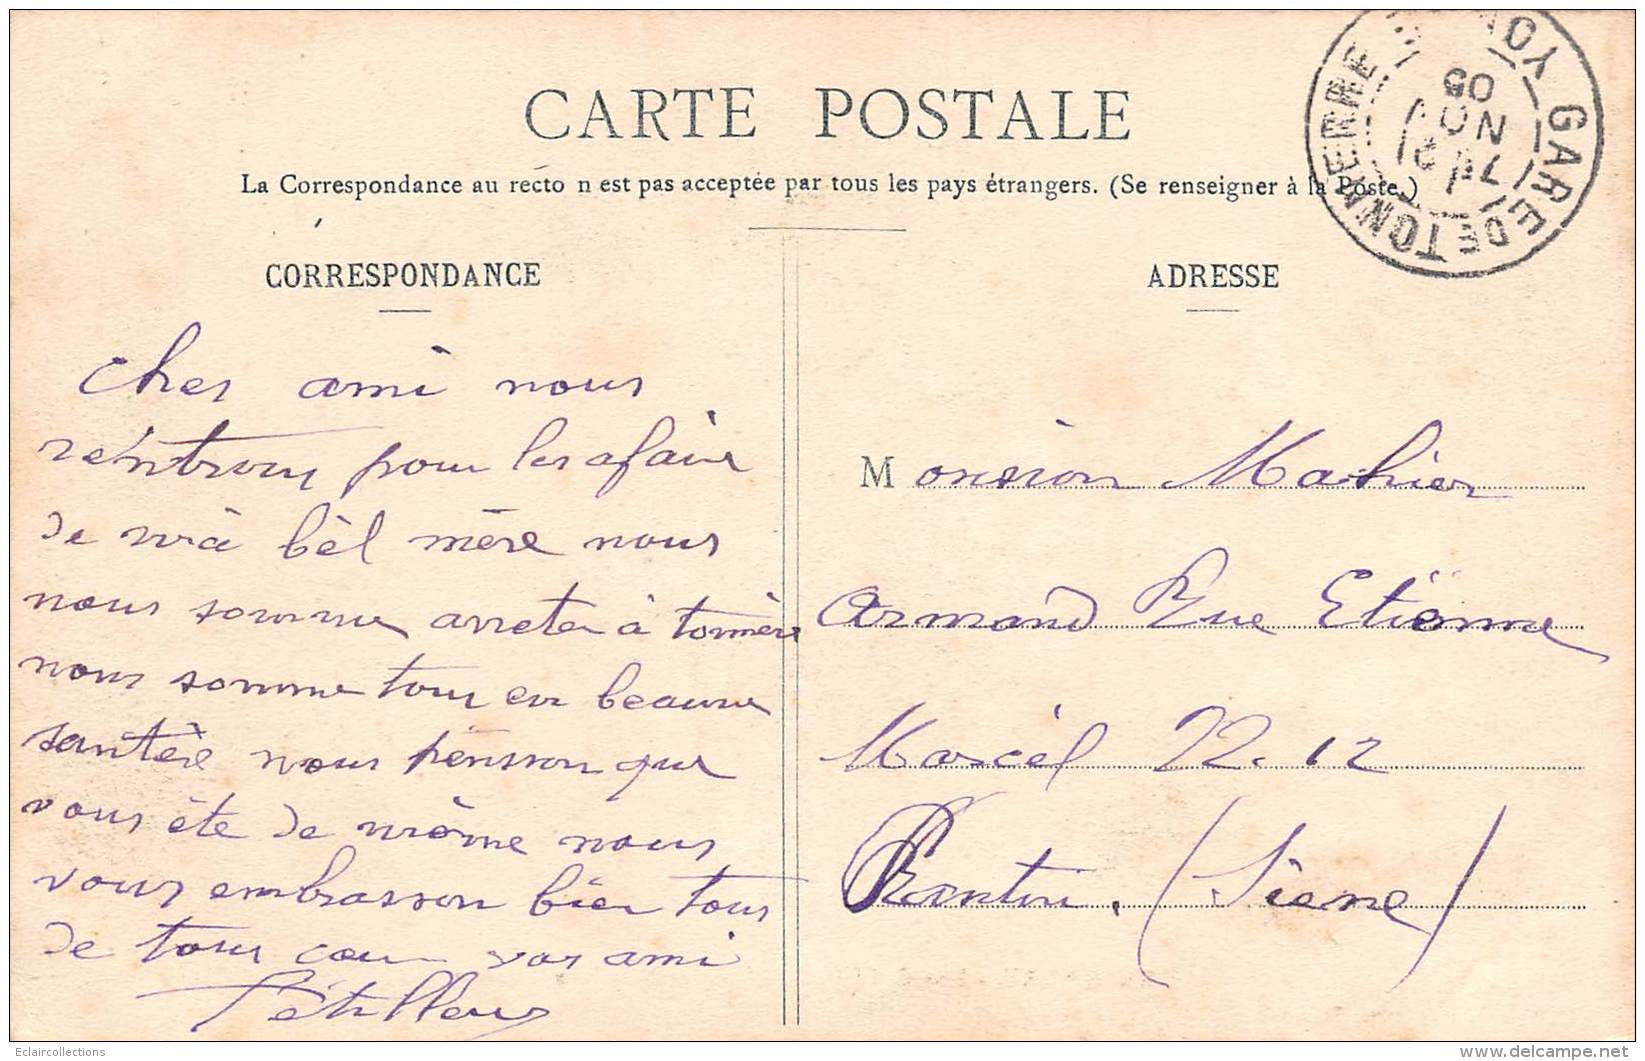 CARTE POSTALE
La Correspondance au recto n est pas acceptée par tous les pays étrangers. (Se renseigner à la Poste.)
GARE DE TONNERRE
YONNE
17
12
NOV
05
CORRESPONDANCE
Cher ami nous
rentrons pour les afaire
de ma bèl mère nous
nous somme arreter à tonnère
nous somme tous en beaune
santère nous pensson que
vous ète de mème nous
vous embrasson bien tous
de tous cœur vos ami
ADRESSE
Monsion Mahier
Armand Rue Etienne
Marcèl 12
Pantin. (Siene)
Eclaircollections
www.delcampe.net